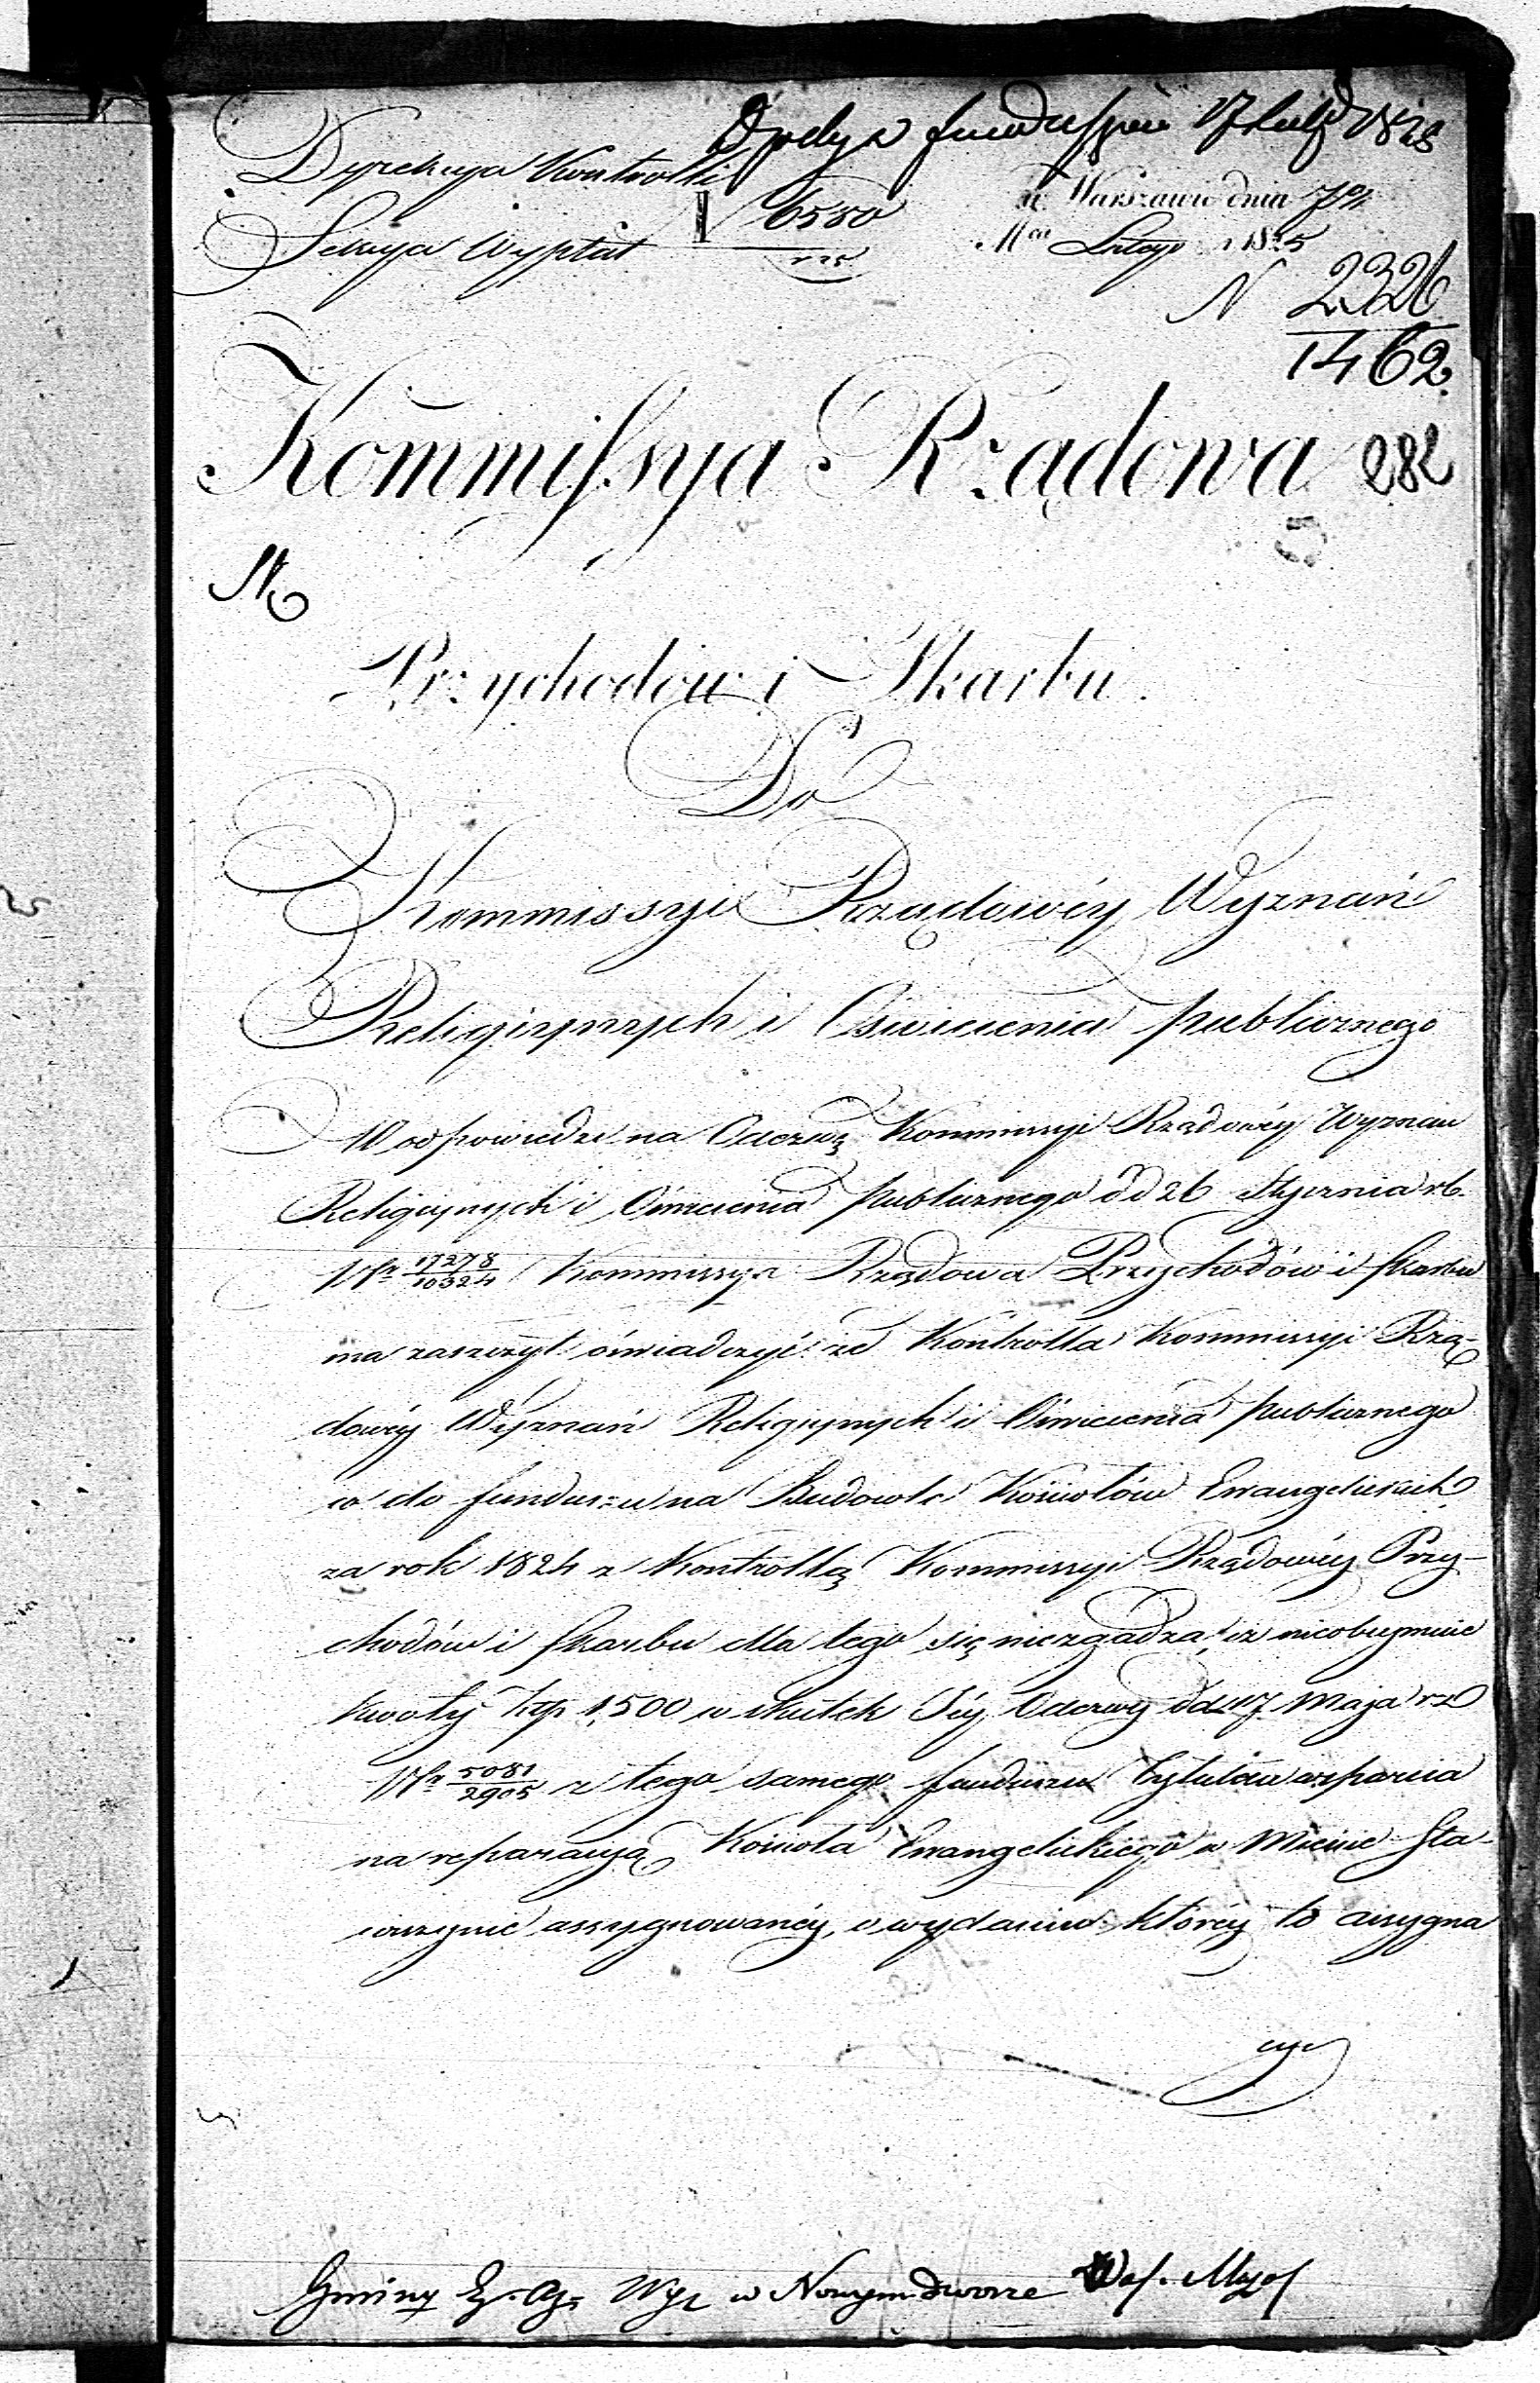 funduszu 17 Lut 1825
Dyrekcya Kontrolli
6550
w Warszawie dnia 7go
Sekcya Wypłat
Mca Lutego 1825
N 2326
1462
Kommissya Rządowa 282
Przychodów i Skarbu.
Do
Kommissyi Rządowéy Wyznań
Religiynych i Oświecenia publicznego
W odpowiedzi na Odezwę Kommissyi Rządowéy Wyznań
Religiynych i Oświecenia publicznego dd 26 Stycznia rb.
Nr 17278/10324 Kommissya Rządowa Przychodów i Skarbu
ma zaszczyt oświadczyć że Kontrolla Kommissyi Rzą-
dowéy Wyznań Religiynych i Oświecenia publicznego
co do funduszu na Budowle Kościołów Ewangelickich
za rok 1824 z Kontrollą Kommissyi Rządowéy Przy-
chodów i Skarbu dla tego się niezgadza, iż nieobeymuie
kwoty złp 1,500 w skutek Jéy Odezwy dd 17 Maja rz
Nr 5081/2905 z tego samego funduszu tytułem wsparcia
na reparacyą Kościoła Ewangelickiego w Mieście Sta-
wiszynie assygnowanéy, o wydaniu któréy to assygna
cyi
Gminy Ew. Wyz w Nowym dworze